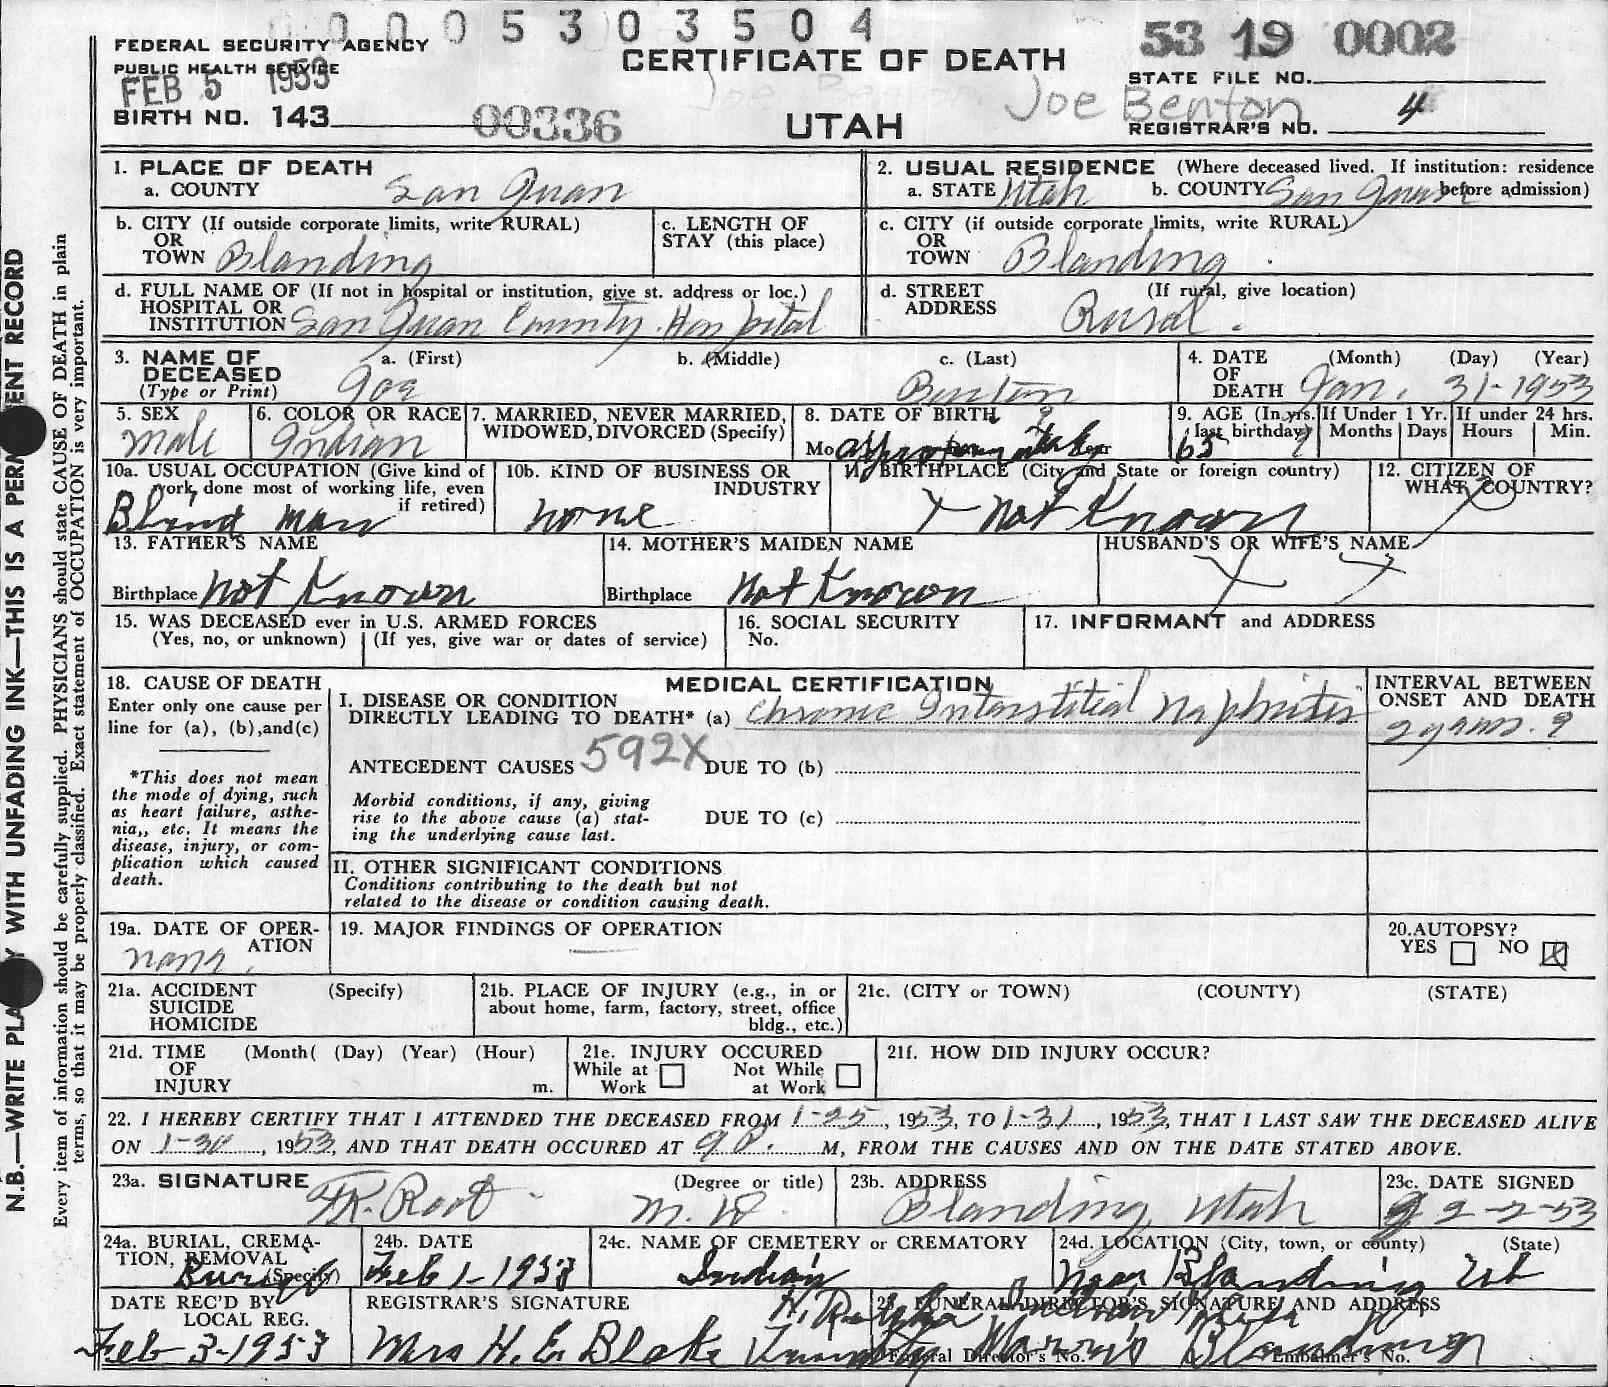 0 0 0 0 5 3 0 3 5 0 4
53 19 0002
FEDERAL SECURITY AGENCY
PUBLIC HEALTH SERVICE
FEB 5 1953
CERTIFICATE OF DEATH
STATE FILE NO.
Joe Benton
BIRTH NO. 143
00336
UTAH
REGISTRAR'S NO. 4
N.B.—WRITE PLA Y WITH UNFADING INK—THIS IS A PERM ENT RECORD
Every item of information should be carefully supplied. PHYSICIANS should state CAUSE OF DEATH in plain
terms, so that it may be properly classified. Exact statement of OCCUPATION is very important.
1. PLACE OF DEATH
a. COUNTY San Juan
2. USUAL RESIDENCE (Where deceased lived. If institution: residence
a. STATE Utah b. COUNTY San Juan before admission)
b. CITY (If outside corporate limits, write RURAL)
OR
TOWN Blanding
c. LENGTH OF
STAY (this place)
c. CITY (if outside corporate limits, write RURAL)
OR
TOWN Blanding
d. FULL NAME OF (If not in hospital or institution, give st. address or loc.)
HOSPITAL OR
INSTITUTION San Juan County Hospital
d. STREET (If rural, give location)
ADDRESS Rural.
3. NAME OF a. (First) b. (Middle) c. (Last)
DECEASED
(Type or Print) Joe Benton
4. DATE (Month) (Day) (Year)
OF
DEATH Jan. 31-1953
5. SEX
Male
6. COLOR OR RACE
Indian
7. MARRIED, NEVER MARRIED,
WIDOWED, DIVORCED (Specify)
8. DATE OF BIRTH ?
Mo
9. AGE (In yrs.
last birthday)
65 ?
If Under 1 Yr.
Months Days
If under 24 hrs.
Hours Min.
10a. USUAL OCCUPATION (Give kind of
work, done most of working life, even
if retired)
Blind man
10b. KIND OF BUSINESS OR
INDUSTRY
none
11. BIRTHPLACE (City and State or foreign country)
X Not Known
12. CITIZEN OF
WHAT COUNTRY?
X
13. FATHER'S NAME
Birthplace Not Known
14. MOTHER'S MAIDEN NAME
Birthplace Not Known
HUSBAND'S OR WIFE'S NAME
X X
15. WAS DECEASED ever in U.S. ARMED FORCES
(Yes, no, or unknown) (If yes, give war or dates of service)
16. SOCIAL SECURITY
No.
17. INFORMANT and ADDRESS
18. CAUSE OF DEATH
Enter only one cause per
line for (a), (b),and(c)
*This does not mean
the mode of dying, such
as heart failure, asthe-
nia,, etc. It means the
disease, injury, or com-
plication which caused
death.
MEDICAL CERTIFICATION
I. DISEASE OR CONDITION
DIRECTLY LEADING TO DEATH* (a) Chronic Interstitial Nephritis
592X
ANTECEDENT CAUSES DUE TO (b)
Morbid conditions, if any, giving
rise to the above cause (a) stat-
ing the underlying cause last.
DUE TO (c)
II. OTHER SIGNIFICANT CONDITIONS
Conditions contributing to the death but not
related to the disease or condition causing death.
INTERVAL BETWEEN
ONSET AND DEATH
2 years. ?
19a. DATE OF OPER-
ATION
none.
19. MAJOR FINDINGS OF OPERATION
20.AUTOPSY?
YES NO X
21a. ACCIDENT (Specify)
SUICIDE
HOMICIDE
21b. PLACE OF INJURY (e.g., in or
about home, farm, factory, street, office
bldg., etc.)
21c. (CITY or TOWN) (COUNTY) (STATE)
21d. TIME (Month( (Day) (Year) (Hour)
OF
INJURY m.
21e. INJURY OCCURED
While at Not While
Work at Work
21f. HOW DID INJURY OCCUR?
22. I HEREBY CERTIFY THAT I ATTENDED THE DECEASED FROM 1-25, 1953, TO 1-31, 1953, THAT I LAST SAW THE DECEASED ALIVE
ON 1-30, 1953, AND THAT DEATH OCCURED AT 9 P. M, FROM THE CAUSES AND ON THE DATE STATED ABOVE.
23a. SIGNATURE (Degree or title)
Root M.D.
23b. ADDRESS
Blanding Utah
23c. DATE SIGNED
2-2-53
24a. BURIAL, CREMA-
TION, REMOVAL
(Specify)
Burial
24b. DATE
Feb 1-1953
24c. NAME OF CEMETERY or CREMATORY
Indian
24d. LOCATION (City, town, or county) (State)
Near Blanding Ut
DATE REC'D BY
LOCAL REG.
Feb 3-1953
REGISTRAR'S SIGNATURE
Mrs H. E. Blake
25. FUNERAL DIRECTOR'S SIGNATURE AND ADDRESS
Blanding
Funeral Director's No. Embalmer's No.